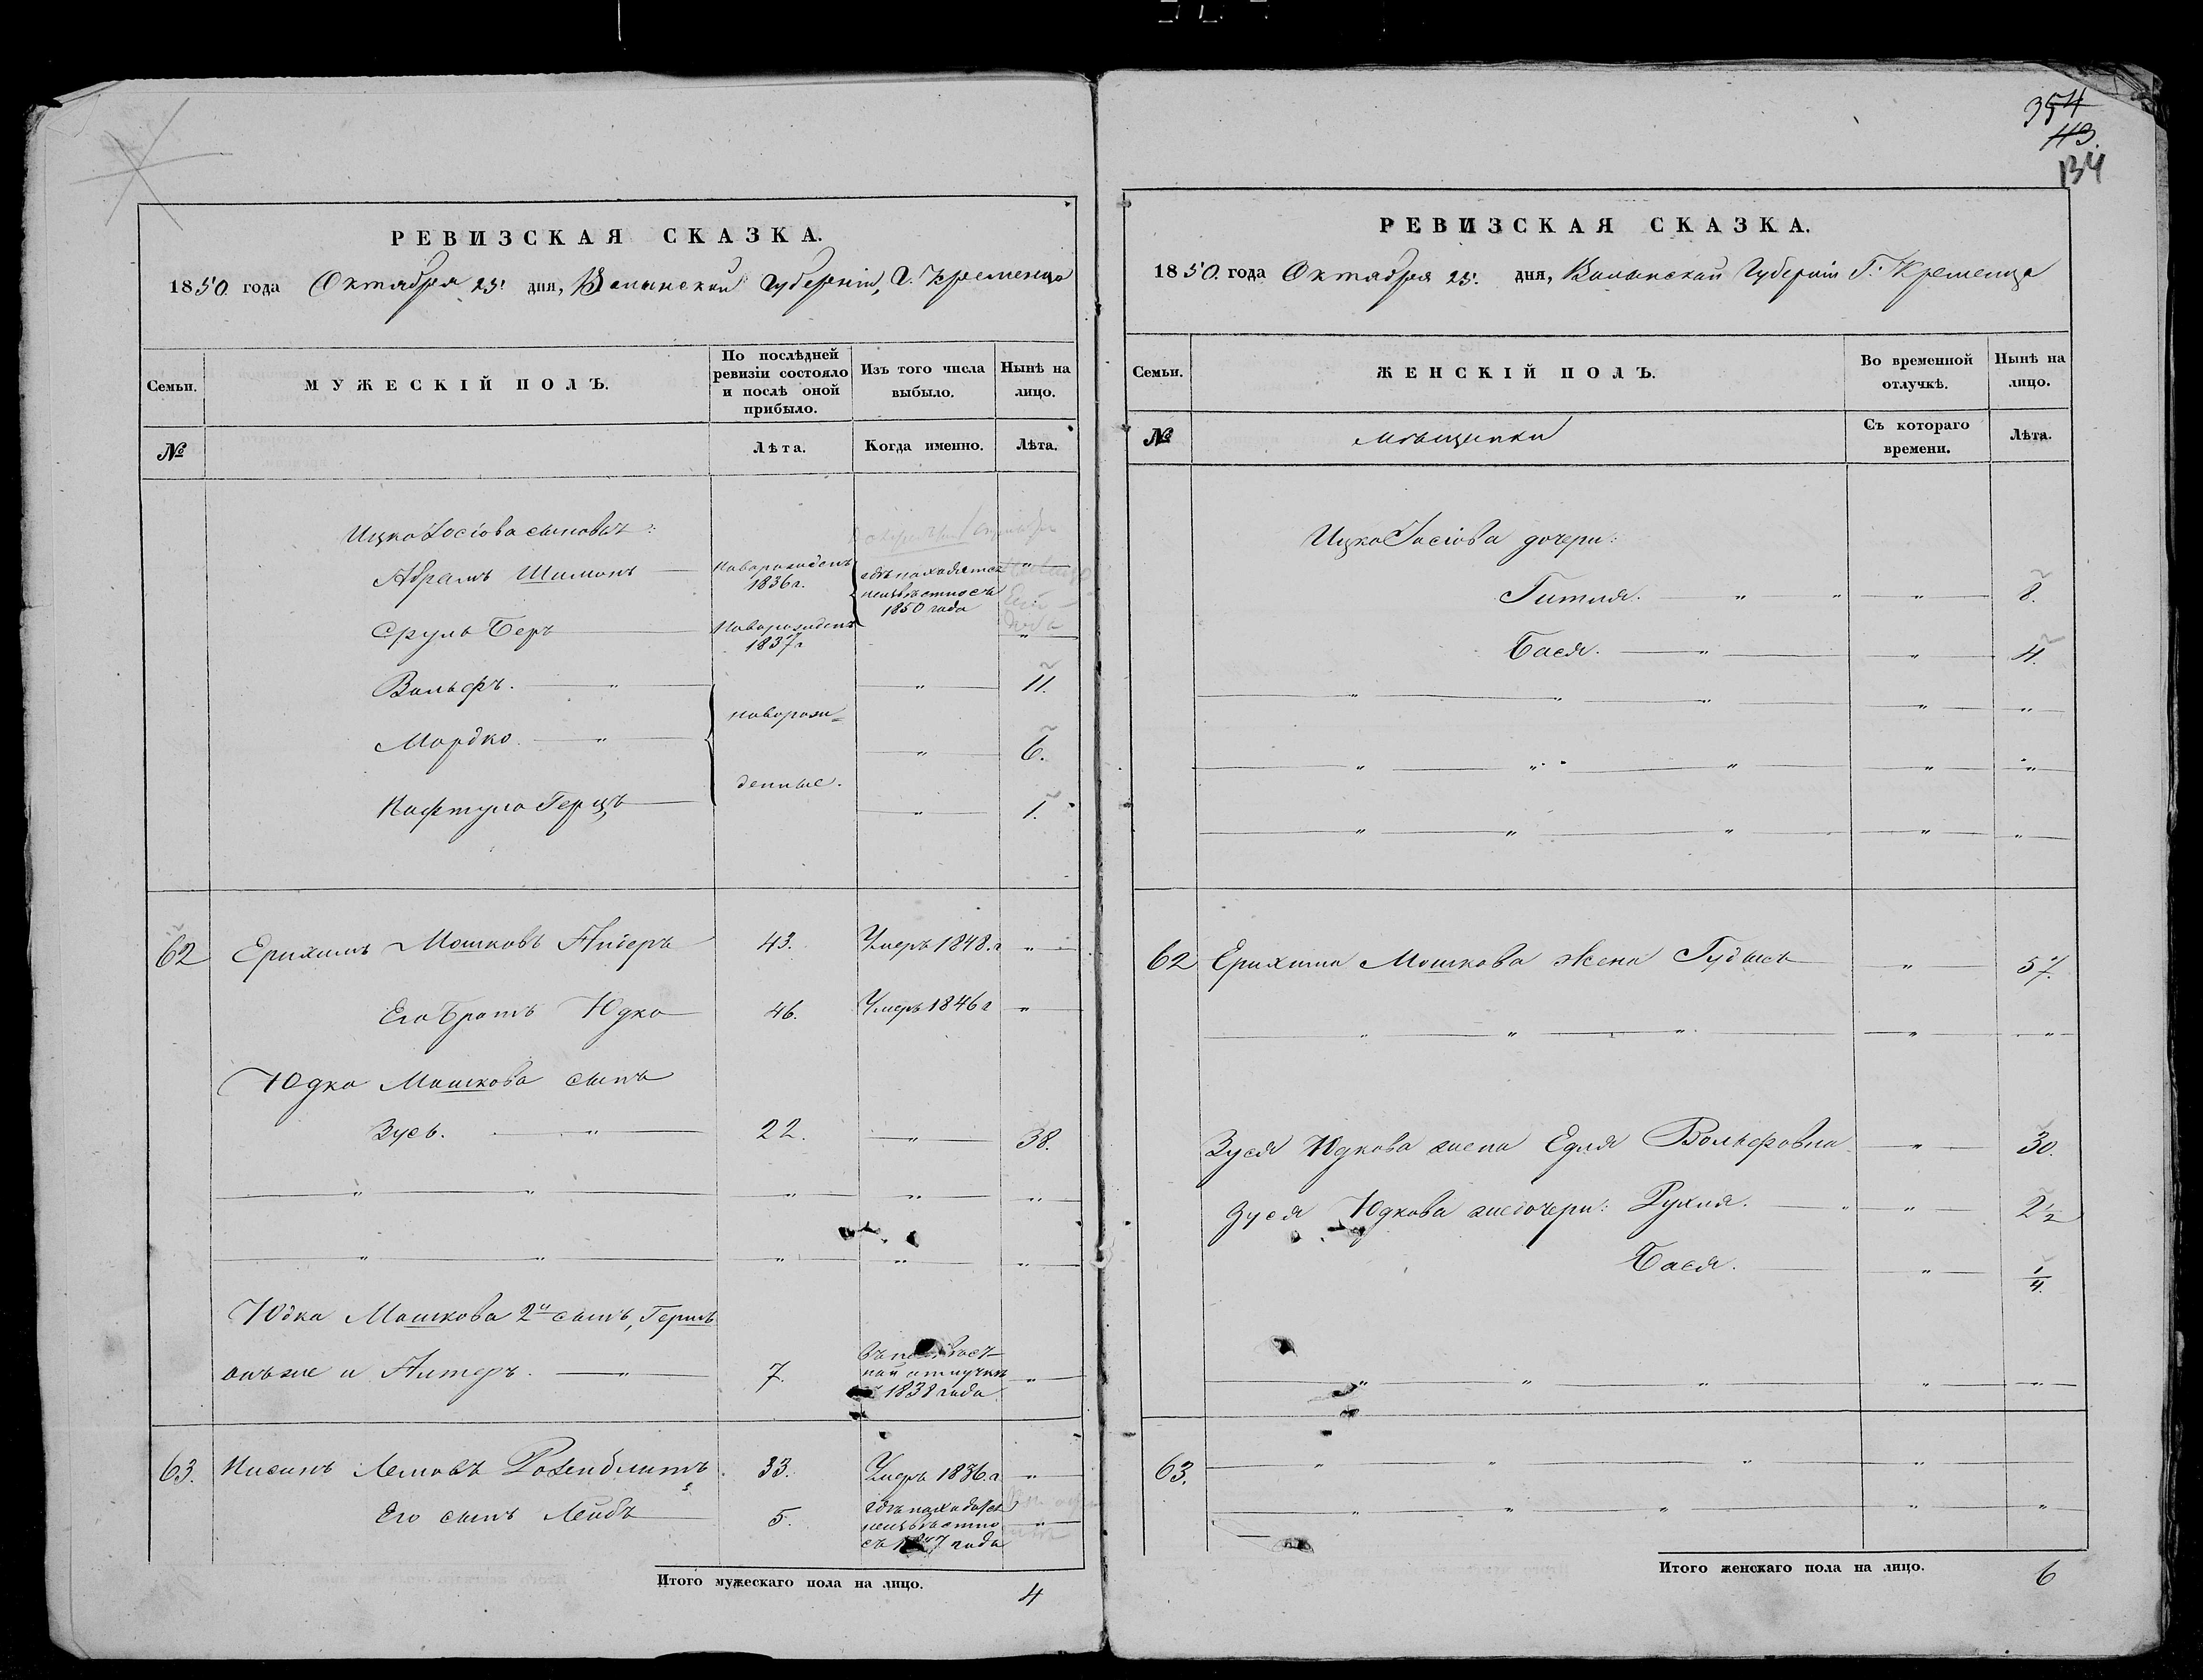 354
43.
134
РЕВИЗСКАЯ СКАЗКА.
1850 года Октября 25 дня, Волынской Губерніи, Г. Кременца
Семьи. МУЖЕСКІЙ ПОЛЪ. По послѣдней ревизіи состояло и послѣ оной прибыло. Изъ того числа выбыло. Нынѣ на лицо.
№ Лѣта. Когда именно. Лѣта.
Ицко Iосіова сыновья:
Абрамъ Шимонъ новорожденъ 1836 г. гдѣ находятся неизвѣстно съ 1850 года "
Сруль Беръ новорожденъ 1837 г "
Вольфъ. " " 11.
новорож=
Мордко. " " 6.
денные.
Нафтула Герцъ " 1.
62 Ерихимъ Мошковъ Аидеръ 43. Умеръ 1848. г "
Его братъ Юдко 46. Умеръ 1846 г "
Юдка Мошкова сынъ
Зусь. " 22. " 38.
" " " " "
" " " " "
Юдка Мошкова 2й сынъ, Гершъ
онъ же и Алтеръ. " 7. отлучкѣ 1838 года "
63. Нисинъ Лемовъ Розенблитъ 33. Умеръ 1836. г "
Его сынъ Лейбъ 5. неизвѣстно съ 1847 года "
Итого мужескаго пола на лицо. 4
РЕВИЗСКАЯ СКАЗКА.
1850. года Октября 25. дня, Волынской Губерніи Г. Кременца
Семьи. ЖЕНСКІЙ ПОЛЪ. Во временной отлучкѣ. Нынѣ на лицо.
№ Мѣщанки Съ котораго времени. Лѣта.
Ицко Iосіова дочери:
Гитля. " " " 8.
Бася. " " 4.
" " " " "
" " " " "
" " " " "
62 Ерихима Мошкова жена Гудысь " 57.
" " " "
Зуся Юдкова жена Едля Вольфовна " 30.
Зуся Юдкова дочери: Рухля. " " 2 1/2
Бася. " 1/4.
" " " " "
63. " " " "
" " " " "
Итого женскаго пола на лицо. 6